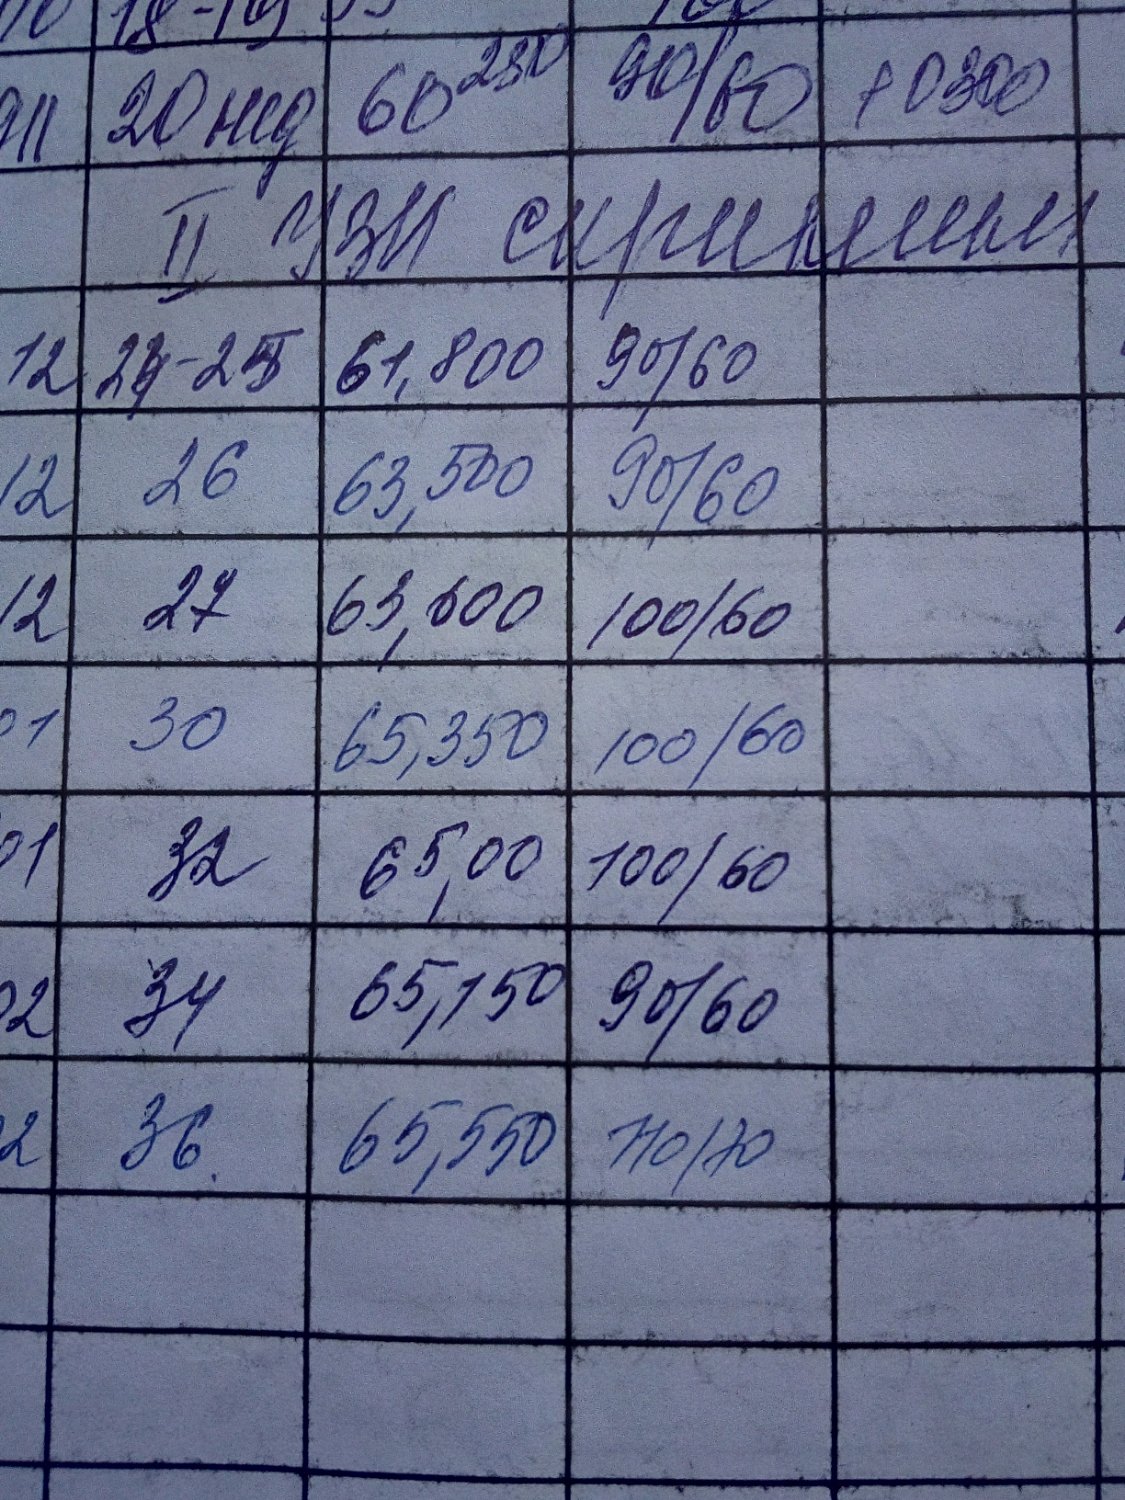 18-19
11 20 нед 60 250 90/60 +0300
II УЗИ скрининг
12 24-25 61,800 90/60
12 26 63,500 90/60
12 27 63,600 100/60
01 30 65,350 100/60
01 32 65,00 100/60
02 34 65,150 90/60
02 36. 65,550 110/70